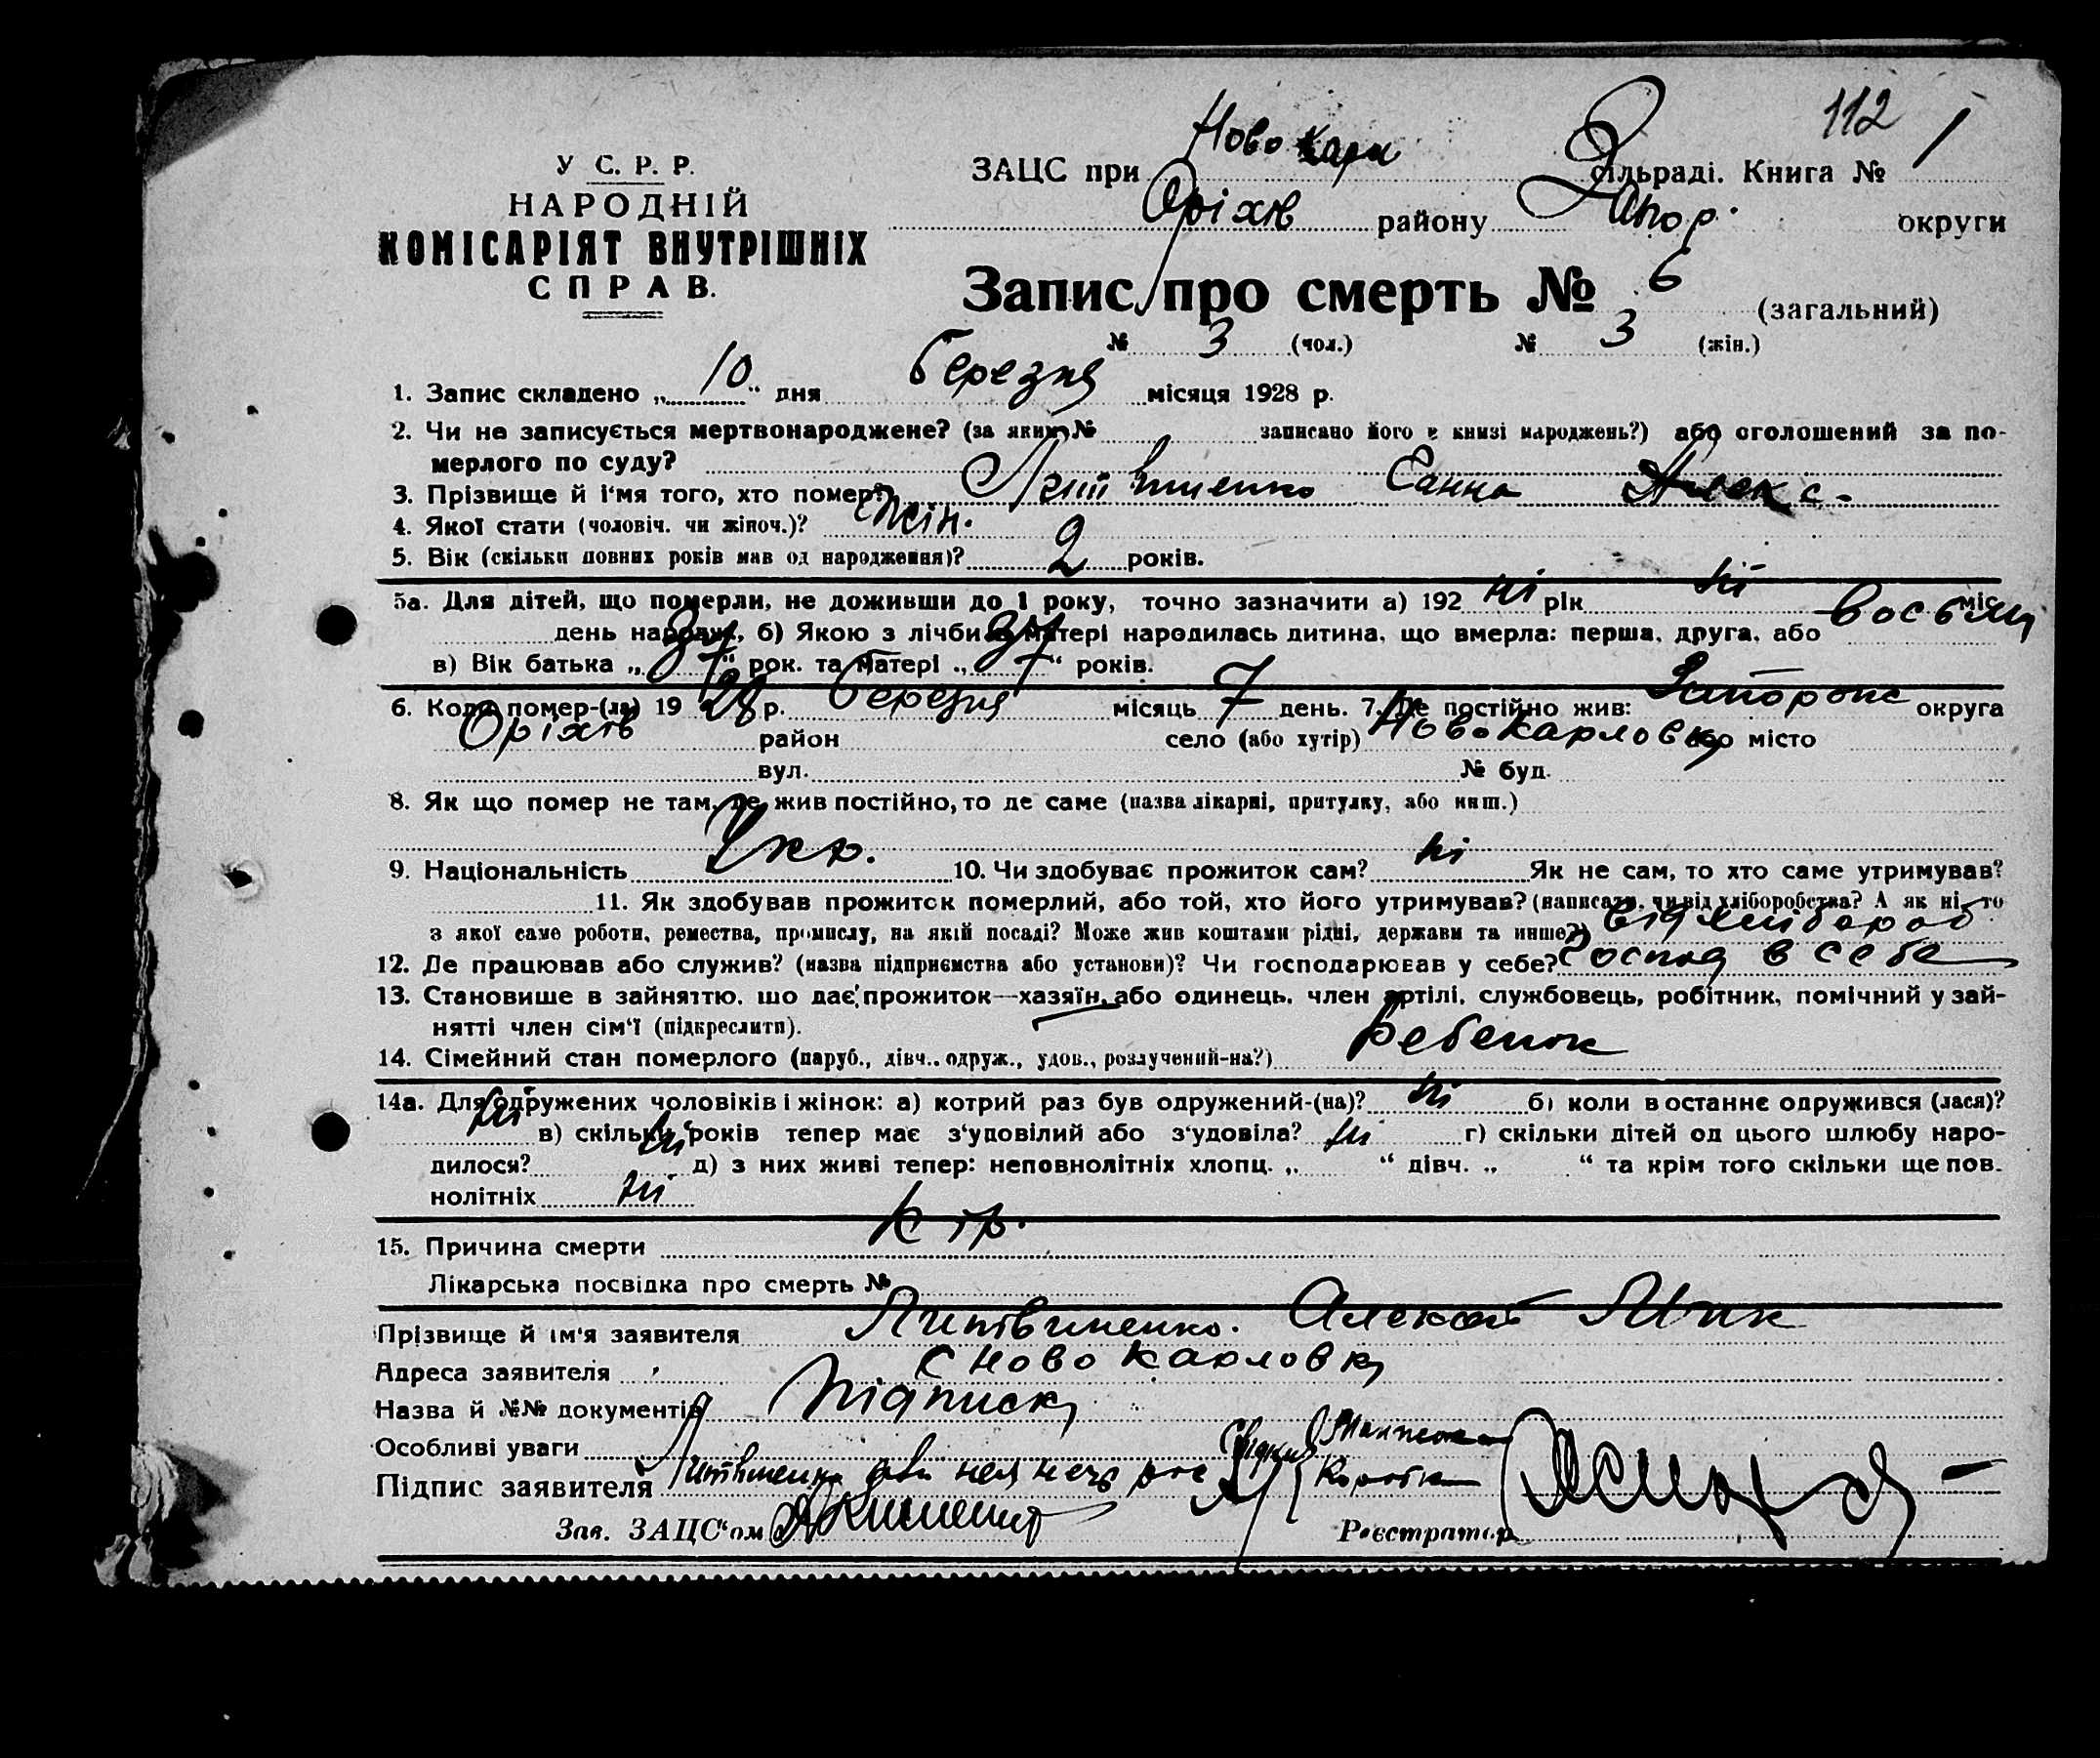 112
У С. Р. Р.
НАРОДНІЙ
КОМІСАРІЯТ ВНУТРІШНІХ
СПРАВ.
ЗАЦС при Ново Карл сільраді. Книга № 1
Оріхів району Запор. округи
Запис про смерть № 6 (загальний)
№ 3 (чол.) № 3 (жін.)
1. Запис складено „10“ дня березня місяця 1928 р.
2. Чи не записується мертвонароджене? (за яким № записано його в книзі народжень?) або оголошений за по-
мерлого по суду?
3. Прізвище й і'мя того, хто помер? Литвиненко Ганна Алекс-
4. Якої стати (чоловіч. чи жіноч.)? жін.
5. Вік (скільки повних років мав од народження)? 2 років.
5а. Для дітей, що померли, не доживши до 1 року, точно зазначити а) 192 ні рік ні міс.
день народж., б) Якою з лічби в матері народилась дитина, що вмерла: перша, друга, або восьми
в) Вік батька „37“ рок. та матері „37“ років.
6. Коли помер-(ла) 1928 р. березня місяць 7 день. 7. Де постійно жив: Запорожс округа
Оріхів район село (або хутір) Ново Карловку або місто
вул. № буд.
8. Як що помер не там, де жив постійно, то де саме (назва лікарні, притулку, або инш.)
9. Національність Укр. 10. Чи здобуває прожиток сам? ні Як не сам, то хто саме утримував?
11. Як здобував прожиток померлий, або той, хто його утримував? (написати, чи від хліборобства? А як ні, то
з якої саме роботи, ремества, промислу, на якій посаді? Може жив коштами рідні, держави та инше?) від хлібороб
12. Де працював або служив? (назва підприємства або установи)? Чи господарював у себе? господ в себе
13. Становище в зайняттю, що дає прожиток—хазяїн, або одинець, член артілі, службовець, робітник, помічний у зай-
нятті член сім'ї (підкреслити).
14. Сімейний стан померлого (паруб., дівч., одруж., удов., розлучений-на?) Ребенок
14а. Для одружених чоловіків і жінок: а) котрий раз був одружений-(на)? ні б) коли в останнє одружився (лася)?
ні в) скільки років тепер має з'удовілий або з'удовіла? ні г) скільки дітей од цього шлюбу наро-
дилося? ні д) з них живі тепер: неповнолітніх хлопц. „ “ дівч. „ “ та крім того скільки ще пов.
нолітніх ні
15. Причина смерти Кір.
Лікарська посвідка про смерть №
Прізвище й ім'я заявителя Литвиненко. Алексей
Адреса заявителя С Ново Карловку
Назва й №№ документів Підписку
Особливі уваги
Підпис заявителя Литвиненко
Зав. ЗАЦС'ом
Реєстратор